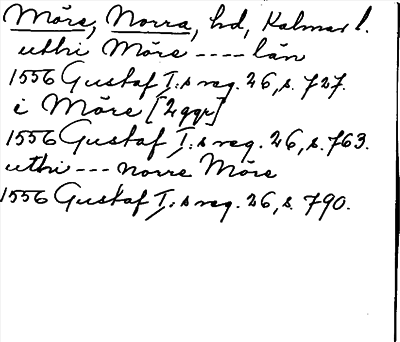 Möre, Norra, hd, Kalmar l.
uthi Möre ---- län
1556 Gustaf I:s reg. 26, s. 727.
i Möre [2 ggr]
1556 Gustaf I:s reg. 26, s. 763.
uthi --- norre Möre
1556 Gustaf I:s reg. 26, s. 790.